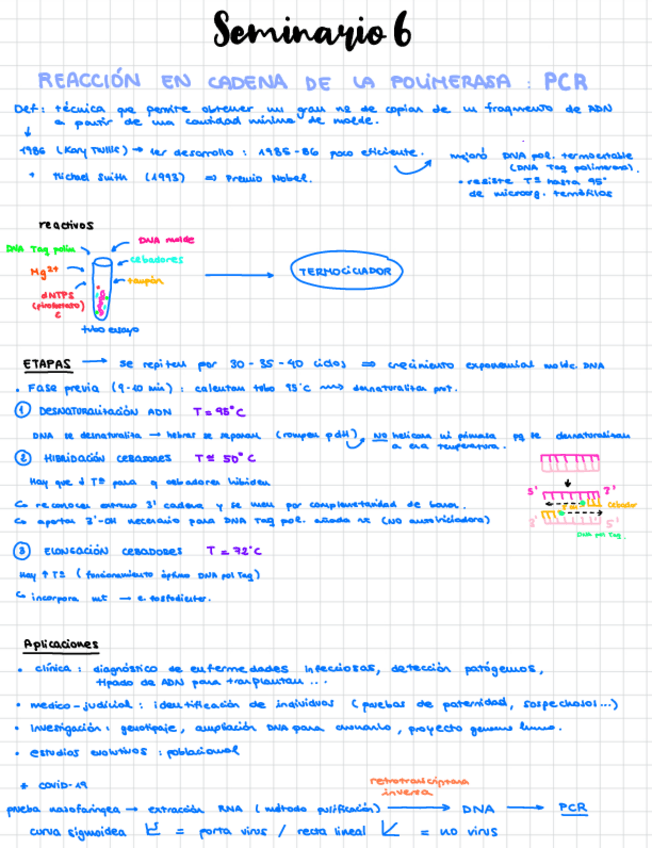 Seminario 6
REACCIÓN EN CADENA DE LA POLIMERASA : PCR
Def : técnica que permite obtener un gran nº de copias de un fragmento de ADN
a partir de una cantidad mínima de molde.
1986 (Kary Mullis) → 1er desarrollo : 1985-86 poco eficiente.
mejoró DNA pol. termoestable
(DNA Taq polimerasa).
+ Michael Smith (1993) ⇒ Premio Nobel.
• resiste Tª hasta 95°
de microorg. termófilos
reactivos
DNA Taq polim
DNA molde
Mg2+
cebadores
dNTPS
tampón
(pirofosfato)
TERMOCICLADOR
tubo ensayo
ETAPAS → se repiten por 30 - 35 - 40 ciclos ⇒ crecimiento exponencial molc. DNA
• Fase previa (9-10 min) : calentam tubo 95°C ⟿ desnaturalizar prot.
① DESNATURALIZACIÓN ADN T = 95°C
DNA se desnaturaliza → hebras se separan (rompen pdH) NO helicasa ni primasa pq se desnaturalizan
a esa temperatura.
② HIBRIDACIÓN CEBADORES T ≅ 50°C
Hay que ↓ Tª para q cebadores hibriden
↳ reconocer extremo 3' cadena y se unen por complementaridad de bases.
↳ aportan 3'-OH necesario para DNA Taq pol. añada nt (NO autoiniciadora)
5' 3'
Cebador
3' 5'
DNA pol Taq.
③ ELONGACIÓN CEBADORES T = 72°C
Hay ↑ Tª (funcionamiento óptimo DNA pol Taq)
↳ incorpora nt → e. fosfodiester.
Aplicaciones
• clínica : diagnóstico de enfermedades infecciosas, detección patógenos,
tipado de ADN para trasplantes...
• medico-judicial : identificación de individuos (pruebas de paternidad, sospechosos...)
• Investigación : genotipaje, ampliación DNA para clonarlo, proyecto genoma humano.
• estudios evolutivos : poblacional
* COVID-19
retrotranscriptasa
inversa
prueba nasofaríngea → extracción RNA (método purificación) → DNA → PCR
curva sigmoidea = porta virus / recta lineal = no virus